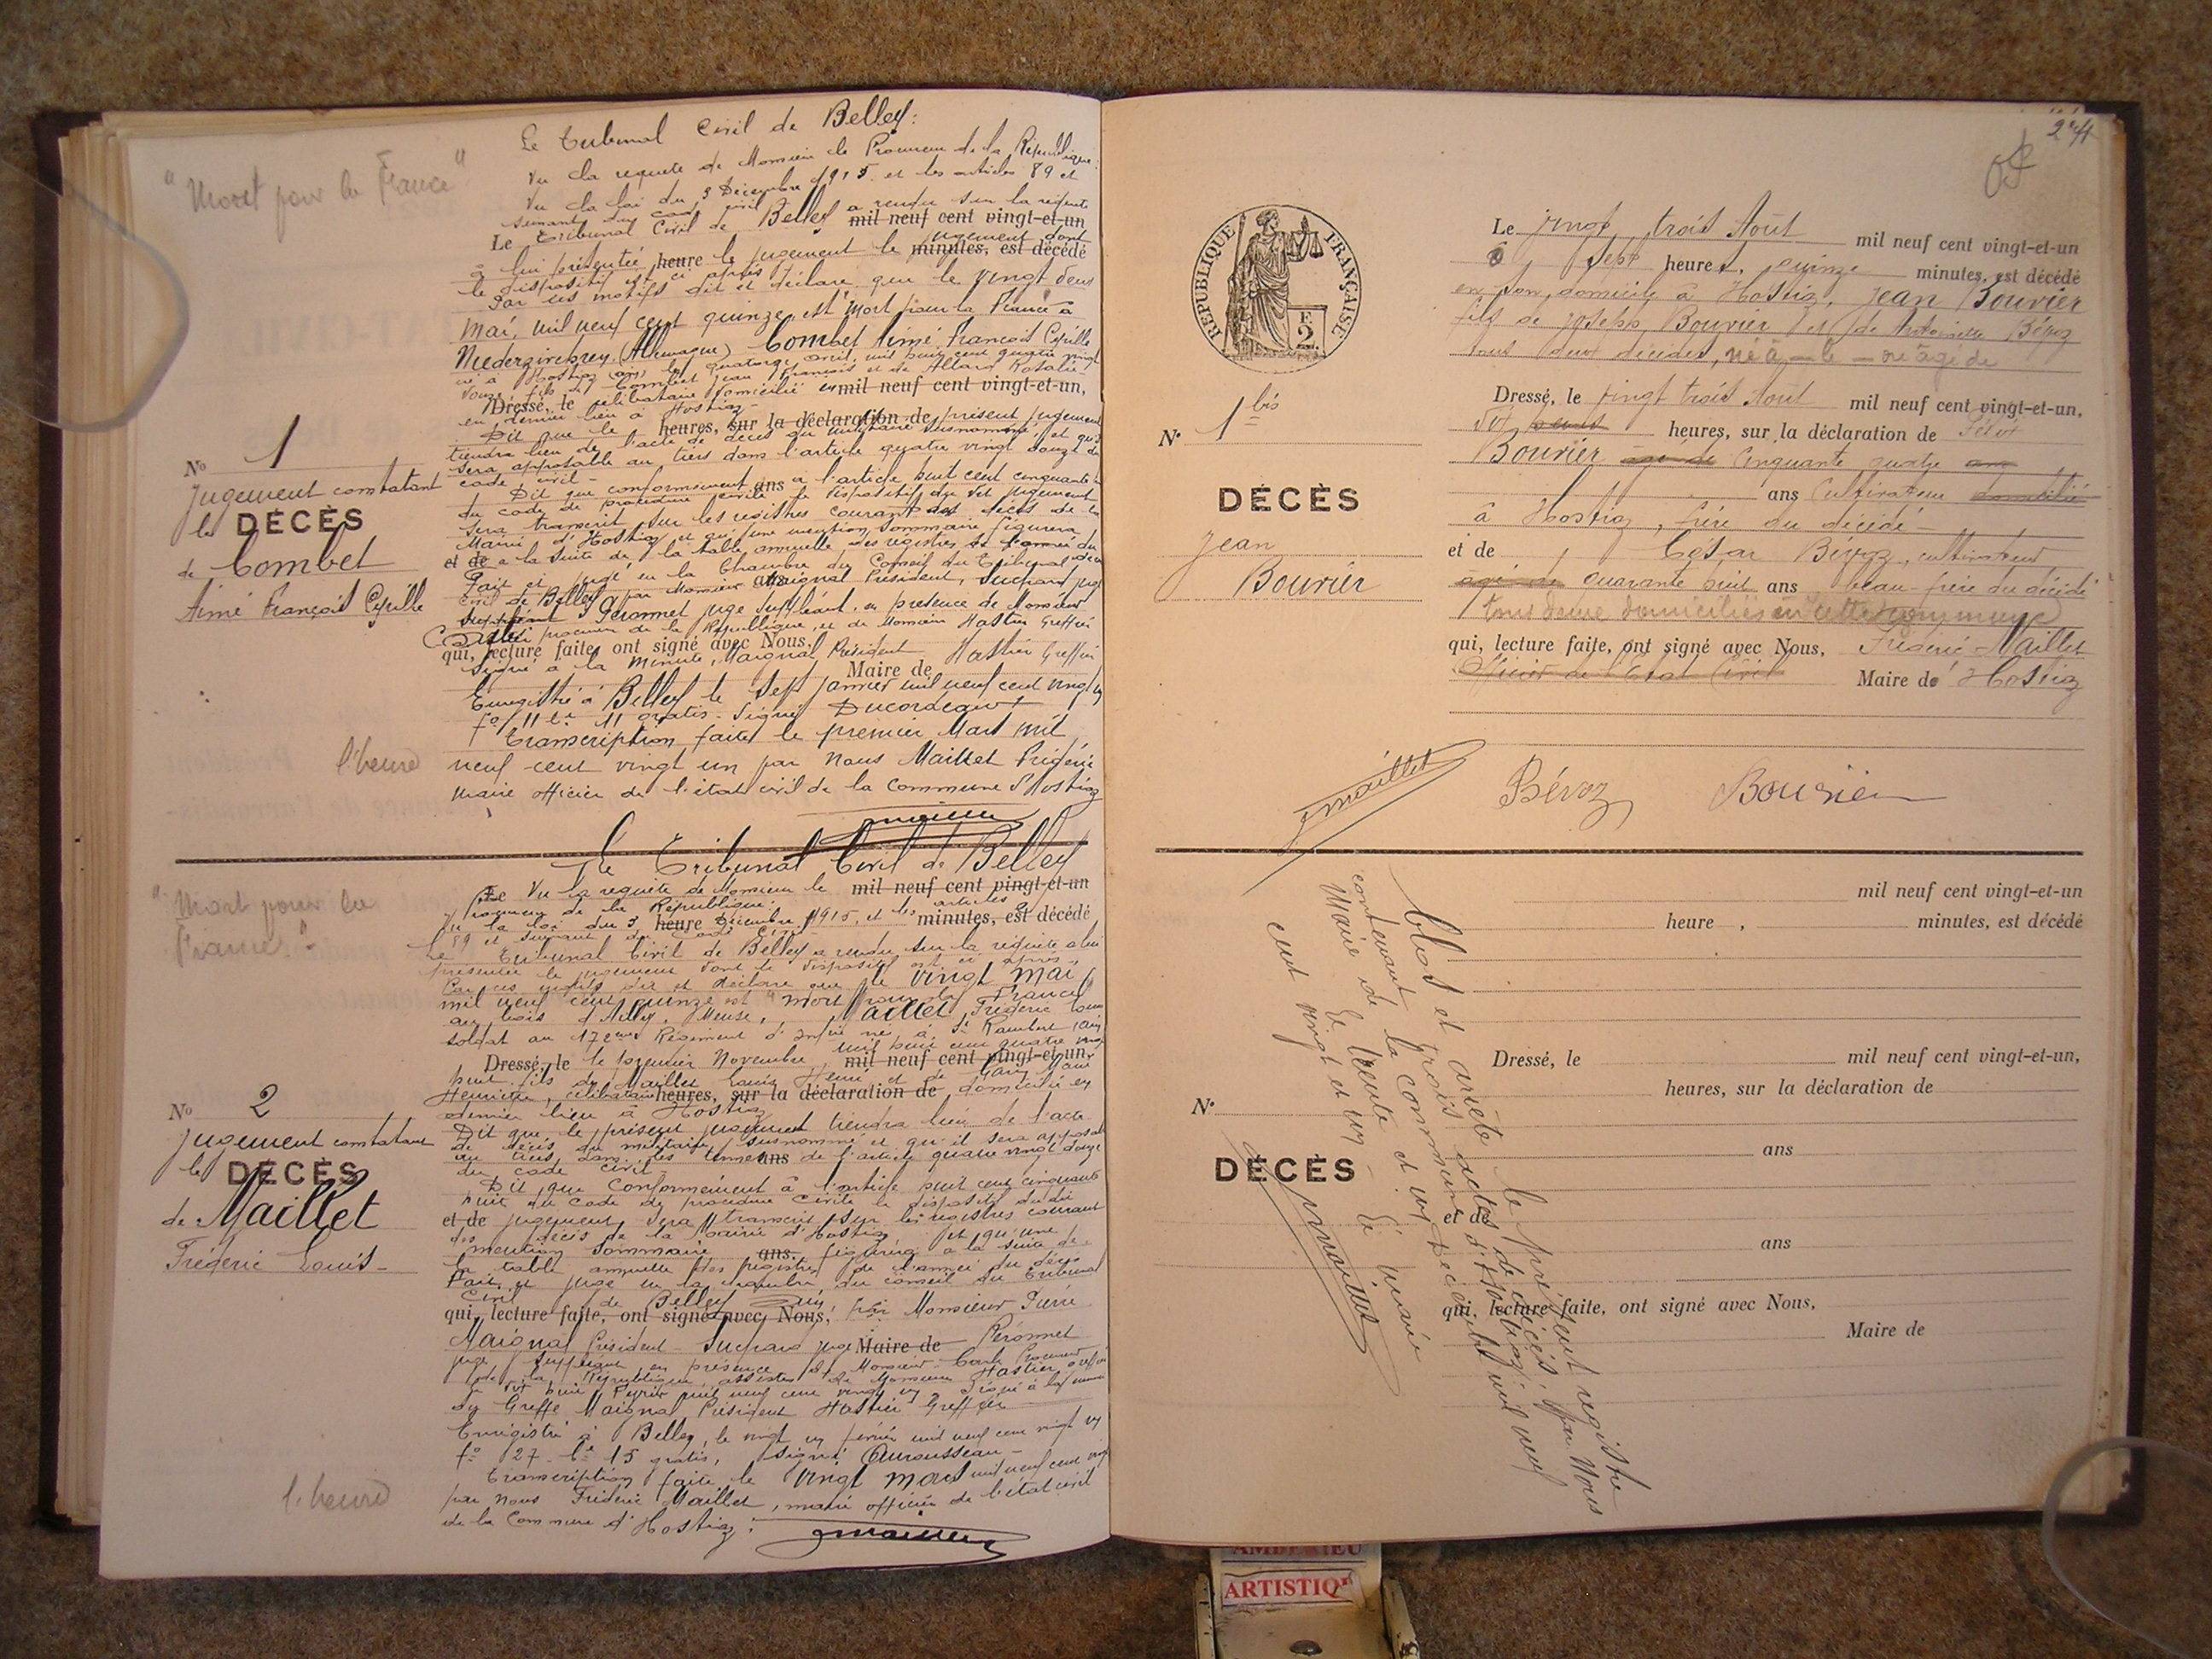 "Mort pour la France"
Le Tribunal Civil de Belley:
Vu la requete de Monsieur le Procureur de la République:
Vu la loi du 3 Décembre 1915 et les articles 89 et
suivants du code civil a rendu sur la requete
Le Tribunal Civil de Belley mil neuf cent vingt-et-un
à lui présentée, heure le jugement le minutes, est décédé jugement dont
le dispositif est ci après
Par ces motifs dit et déclare que le vingt deux
Mai, mil neuf cent quinze, est "Mort pour la France" à
(Allemagne) Combet Aimé, François Cyrille
né à Hostiaz (Ain) le quatorze avril, mil huit cent quatre vingt
douze, fils de Combet Jean François et de Allard Rosalie
Dressé, le célibataire domicilié en mil neuf cent vingt-et-un,
en dernier lieu à Hostiaz -
Dit que le heures, sur la déclaration de présent jugement
tiendra lieu de l'acte de décès du militaire susnommé, et qu'il
sera opposable au tiers dans l'article quatre vingt douze du
code civil -
Dit que conformément ans à l'article huit cent cinquante
du code de procédure civile le dispositif du dit jugement
sera transcrit sur les registres courant des décès de la
Mairie d'Hostiaz et qu'une mention sommaire figurera
et de à la suite de la table annuelle des registres de l'année du
Fait et jugé en la Chambre du Conseil du Tribunal
civil de Belley par Monsieur Maignal Président, Suchard juge
suppléant Peronnet juge suppléant, en présence de Monsieur
procureur de la République, et de Monsieur Hastier Greffier
qui, lecture faite, ont signé avec Nous,
Signé à la minute, Maignal Président Hastier Greffier
Maire de
Enregistré à Belley le sept janvier mil neuf cent vingt un
f° 11 c° 11 gratis - Signé
Transcription faite le premier Mars mil
neuf cent vingt un par Nous Maillet Frédéric
Maire officier de l'état civil de la commune d'Hostiaz
Maillet
No 1
Jugement constatant
le DÉCÈS
de Combet
Aimé François Cyrille
"Mort pour la
France"
Le Tribunal Civil de Belley
Vu la requete de Monsieur le mil neuf cent vingt-et-un
Procureur de la République.
Vu la loi du 3 heure Décembre 1915, et les articles minutes, est décédé
89 et suivant du Code Civil
Le Tribunal Civil de Belley a rendu sur la requete à lui
présentée le jugement dont le dispositif est ci après
Par ces motifs dit et déclare que le vingt mai
mil neuf cent quinze est "Mort pour la France"
au bois d'Ailly, Meuse, Maillet Frédéric Louis
soldat au 17eme Régiment d'Infie né à St Rambert (Ain)
Dressé, le le premier Novembre mil huit cent quatre vingt mil neuf cent vingt-et-un,
huit fils de Maillet Louis Henri et de Marie
Henriette, célibataire heures, sur la déclaration de domicilié en
dernier lieu à Hostiaz
Dit que le présent jugement tiendra lieu de l'acte
de décès du militaire susnommé et qu'il sera opposable
au tiers dans les termes ans de l'article quatre vingt douze
du code civil -
Dit que conformément à l'article huit cent cinquante
huit du Code de procédure civile le dispositif du dit
et de jugement sera transcrit sur les registres courant
des décès de la Mairie d'Hostiaz et qu'une
mention sommaire ans, figurera à la suite de
la table annuelle des registres de l'année du décès
Fait et jugé en la chambre du conseil du Tribunal
Civil de Belley
qui, lecture faite, ont signé avec Nous, par Monsieur Pierre
Maignal Président Suchard juge Maire de Peronnet
juge suppléant en présence de Monsieur Procureur
de la République, assistés de Monsieur Hastier greffier
le dix huit Février mil neuf cent vingt un Signé à la minute
du Greffe Maignal Président Hastier Greffier
Enregistré à Belley, le vingt un février mil neuf cent vingt un
f° 27 c° 15 gratis, signé
Transcription faite le vingt mars mil neuf cent vingt
par nous Frédéric Maillet, maire officier de l'état civil
de la Commune d'Hostiaz.
Maillet
No 2
Jugement constatant
le DÉCÈS
de Maillet
Frédéric Louis -
RÉPUBLIQUE FRANÇAISE
F.
2.
Le vingt trois Août mil neuf cent vingt-et-un
à sept heures, quinze minutes, est décédé
en son domicile à Hostiaz, Jean Bouvier
fils de Joseph Bouvier et de Antoinette Bévoz
tous deux décédés, né à - le - ne âge de
Dressé, le vingt trois Août mil neuf cent vingt-et-un,
dix heures, sur la déclaration de
Bouvier âgé de cinquante quatre ans
ans cultivateur domicilié
à Hostiaz, frère du décédé -
et de César Bévoz, cultivateur
âgé de quarante huit ans beau-frère du décédé
tous deux domiciliés en cette commune
qui, lecture faite, ont signé avec Nous, Frédéric Maillet
Officier de l'Etat Civil Maire de Hostiaz
Maillet Bévoz Bouvier
N° 1 bis
DÉCÈS
Jean
Bouvier
mil neuf cent vingt-et-un
heure , minutes, est décédé
Dressé, le mil neuf cent vingt-et-un,
heures, sur la déclaration de
ans
et de
ans
qui, lecture faite, ont signé avec Nous,
Maire de
N°
DÉCÈS
Clos et arrêté le présent registre
contenant trois actes de décès, par Nous
Maire de la commune d'Hostiaz,
le trente et un Décembre mil neuf
cent vingt et un - Le maire
Maillet
ARTISTIQ